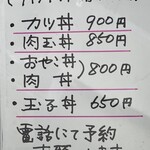 ・カツ丼 900円
・肉玉丼 850円
・おやこ丼
 肉 丼 )800円
・玉子丼 650円
電話にて予約